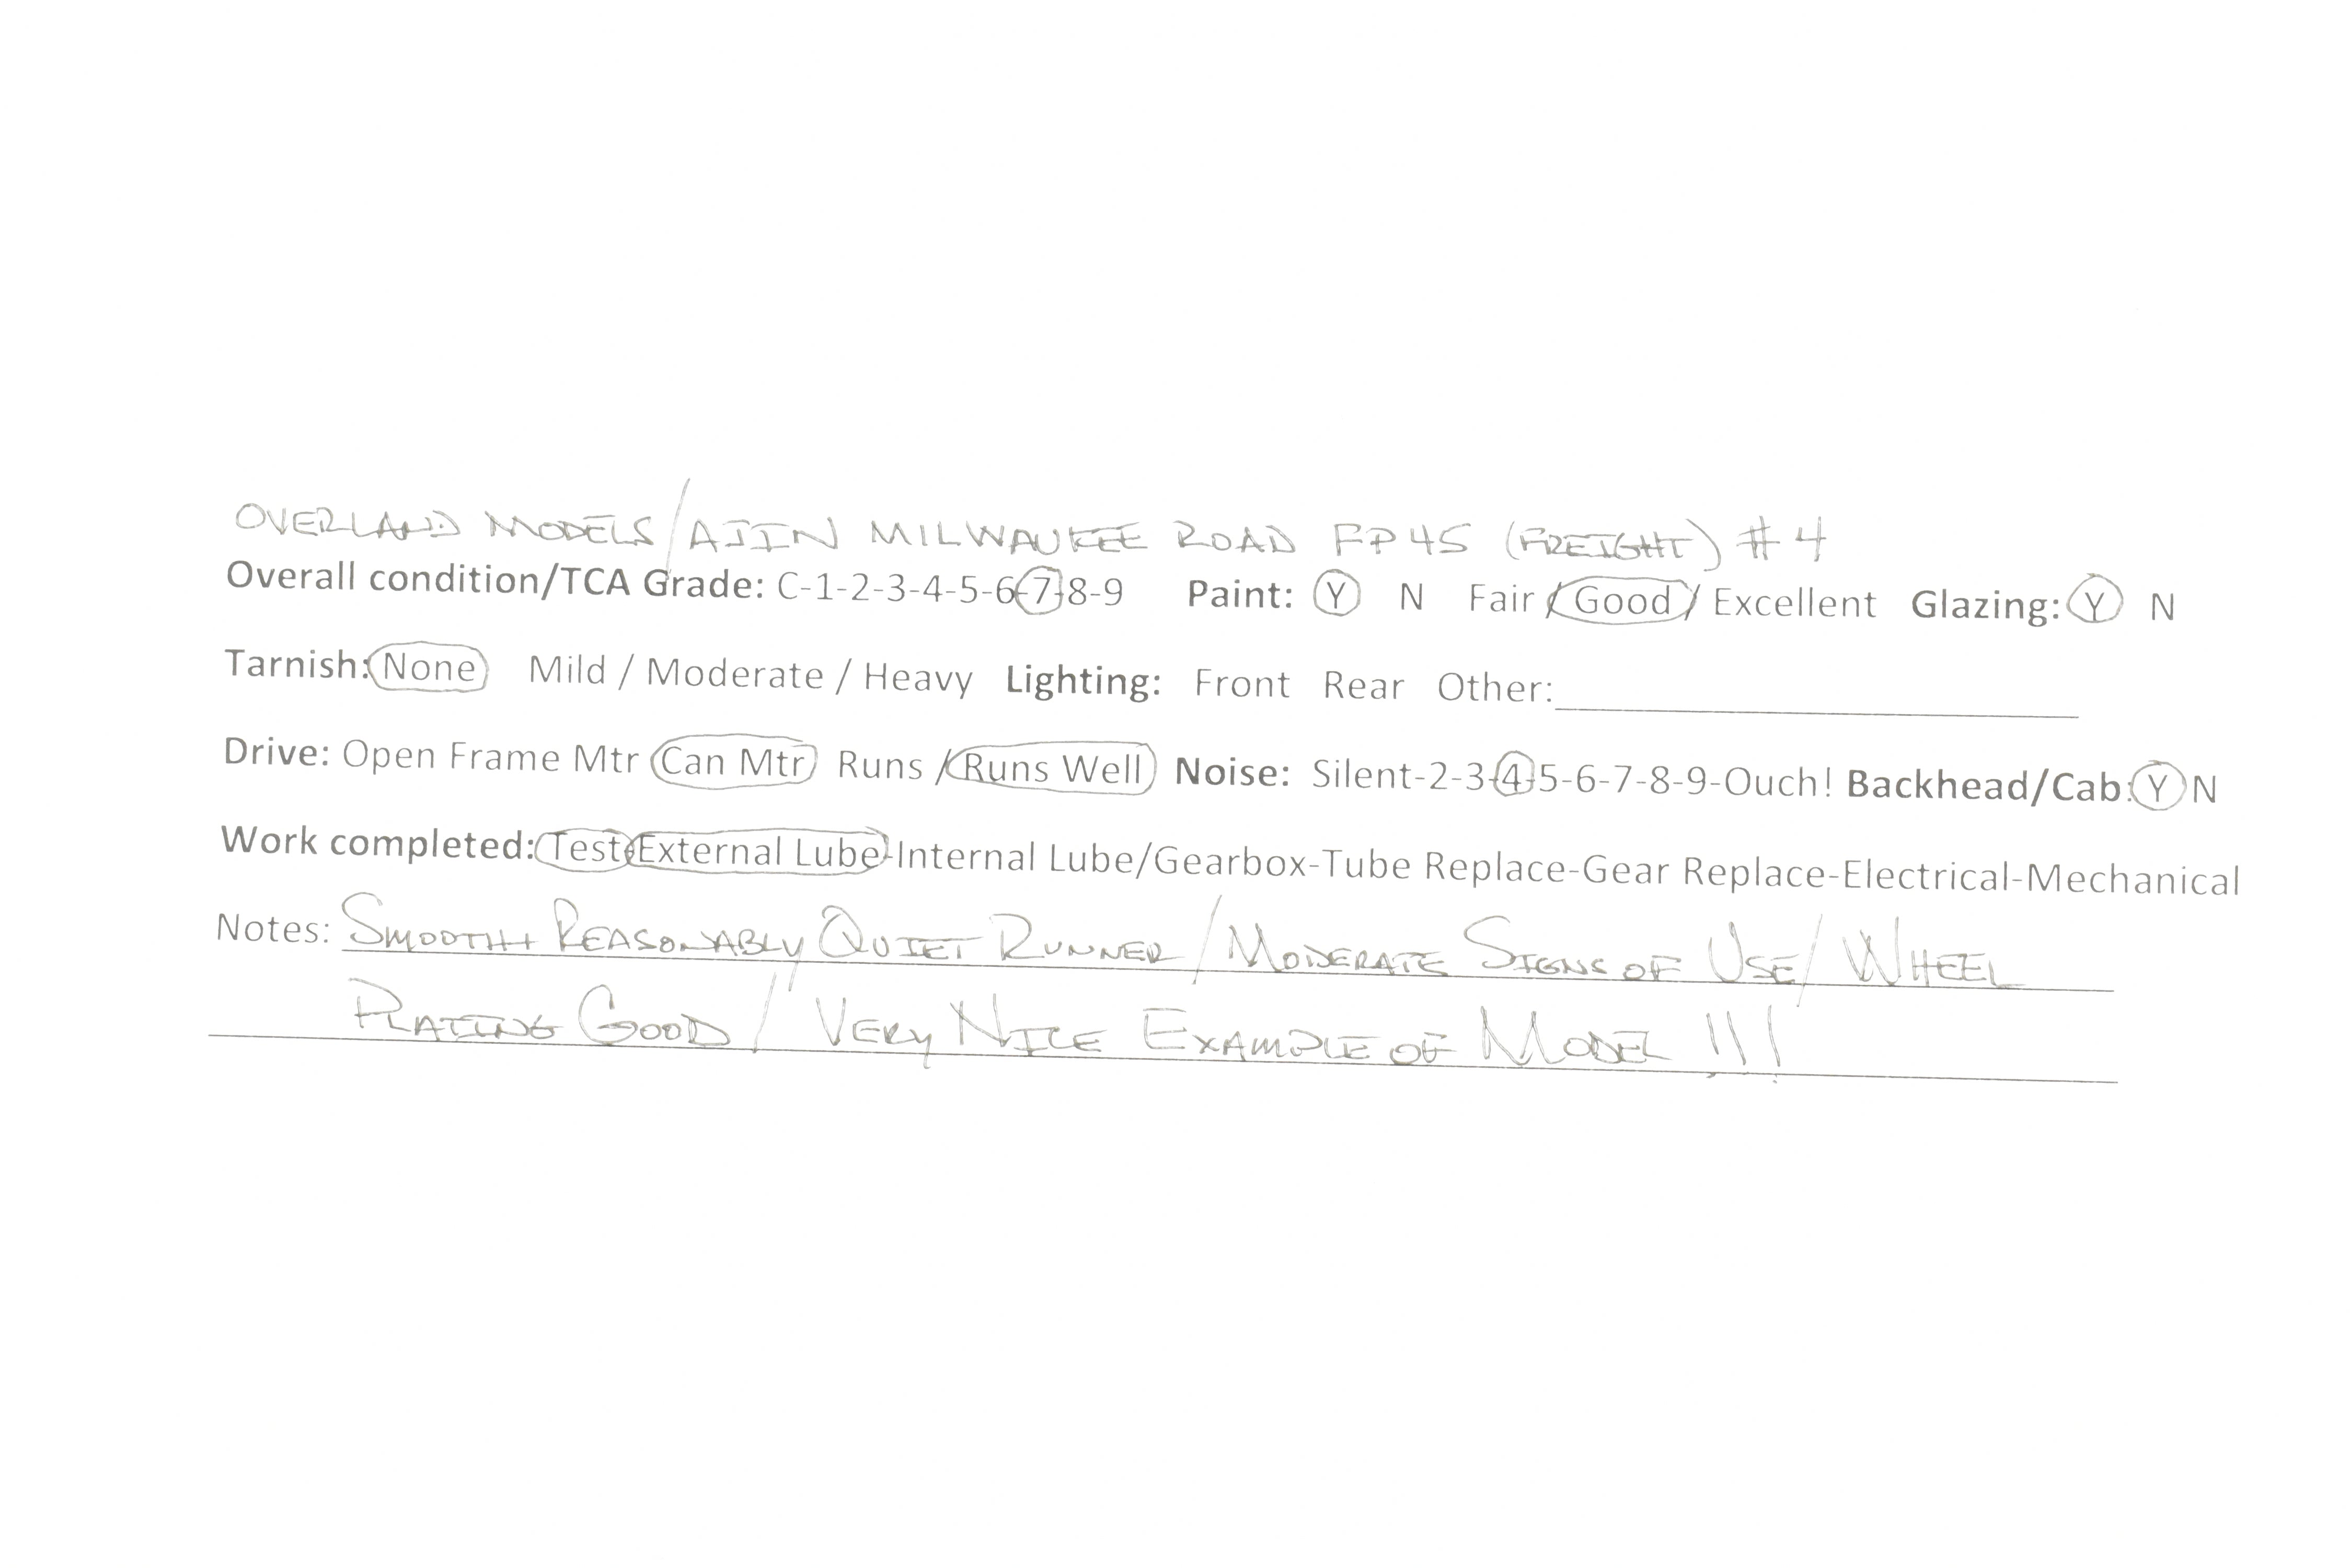 OVERLAND MODELS/AJIN MILWAUKEE ROAD FP45 (FREIGHT) #4
Overall condition/TCA Grade: C-1-2-3-4-5-6-7-8-9 Paint: Y N Fair / Good / Excellent Glazing: Y N
Tarnish: None Mild / Moderate / Heavy Lighting: Front Rear Other:
Drive: Open Frame Mtr Can Mtr Runs / Runs Well Noise: Silent-2-3-4-5-6-7-8-9-Ouch! Backhead/Cab: Y N
Work completed: Test-External Lube-Internal Lube/Gearbox-Tube Replace-Gear Replace-Electrical-Mechanical
Notes: SMOOTH REASONABLY QUIET RUNNER/MODERATE SIGNS OF USE/WHEEL
PLATING GOOD/VERY NICE EXAMPLE OF MODEL !!!